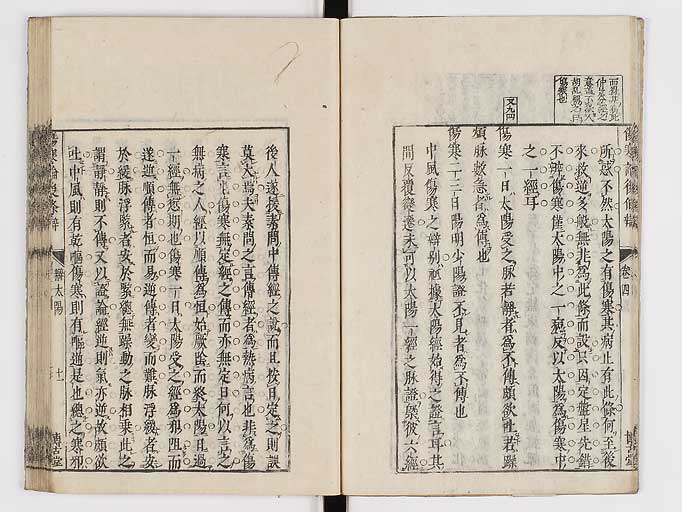 傷寒論後條辨
卷四
所惑不然太陽之有傷寒其病止有此條何至後
來救逆多般無非為此條而設只因定盤星先錯
不辨傷寒僅太陽中之一證反以太陽為傷寒中
之一經耳
傷寒一日太陽受之脉若靜者為不傳頗欲吐若躁
煩脉數急者為傳也
傷寒二三日陽明少陽證不見者為不傳也
中風傷寒之辨別祗據太陽經始得之證言耳其
間反覆變遷未可以太陽一經之脉證槩彼六經
後人遂援素問中傳經之說而且按日定之則誤
莫大焉夫素問之言傳經者為熱病言也非為傷
寒言也傷寒無定經之傳而亦無定日何以言之
無病之人經以順傳為恒始厥陰而終太陽日過
一經無愆期也傷寒一日太陽受之經為邪阻而
遂逆順傳者恒而易逆傳者變而難脉浮緊者安
於緩脉浮緊者安於緊總無躁動之脉相乗此之
謂靜靜則不傳又以證論經逆則氣亦逆故頗欲
吐中風則有乾嘔傷寒則有嘔逆是也總之寒邪
辨太陽
十一
博古堂